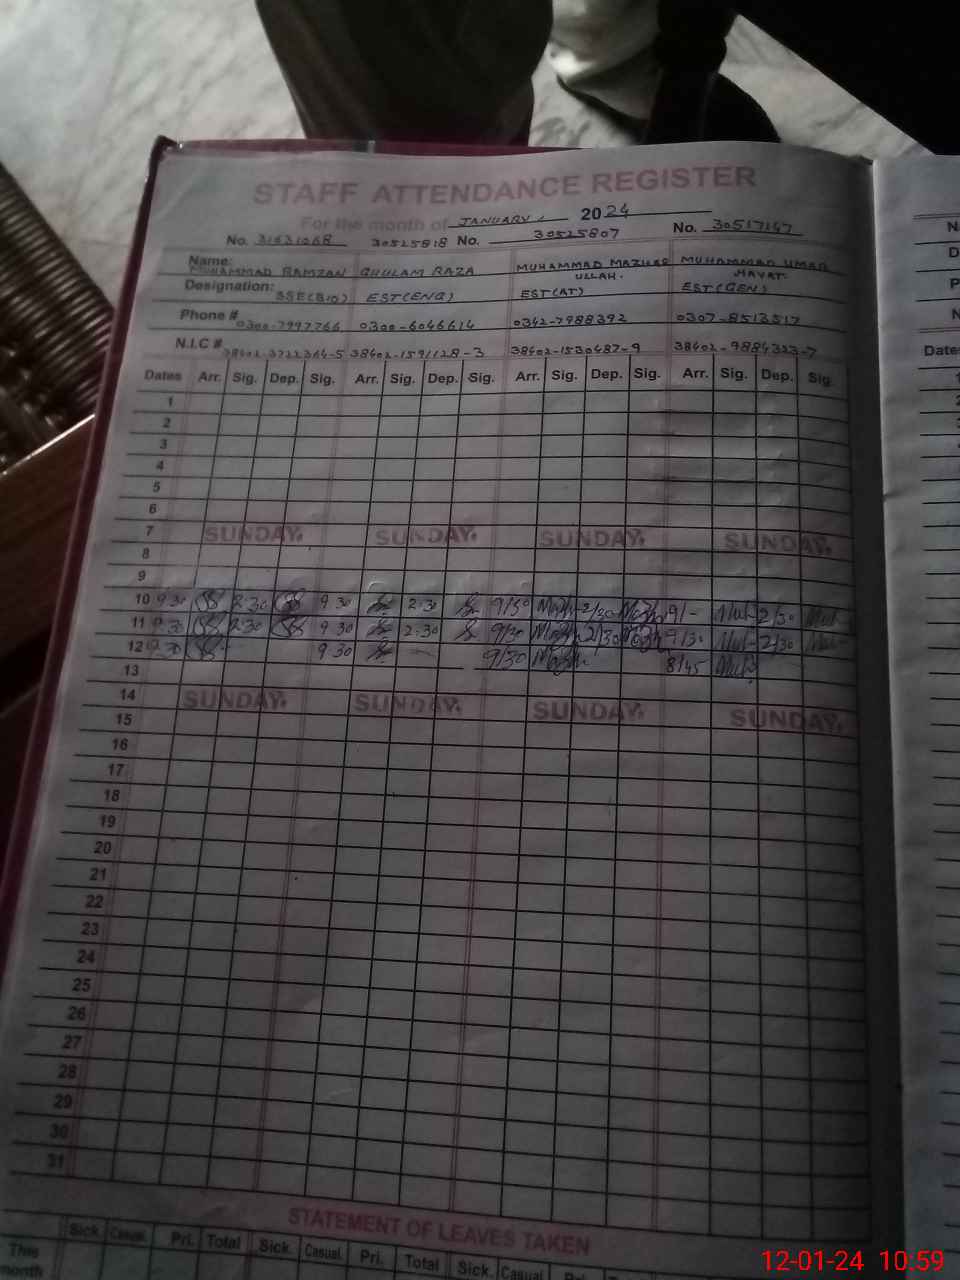 STAFF ATTENDANCE REGISTER
For the month of JANUARY 2024
No. 31631068 30525818 No. 30525807 No. 30517147
Name: MUHAMMAD RAMZAN GHULAM RAZA MUHAMMAD MAZHAR ULLAH. MUHAMMAD UMAR HAYAT.
Designation: SSE(BIO) EST(ENG) EST(AT) EST(GEN)
Phone # 0300-7997766 0300-6046614 0342-7988392 0307-8513517
N.I.C # 38402-3722364-5 38402-1591128-3 38402-1530487-9 38402-9884323-7
Dates Arr. Sig. Dep. Sig. Arr. Sig. Dep. Sig. Arr. Sig. Dep. Sig. Arr. Sig. Dep. Sig.
1
2
3
4
5
6
7 SUNDAY. SUNDAY. SUNDAY. SUNDAY.
8
9
10 9.30 2.30 9 30 2.30 9/30 2/30 9/- 2/30
11 9.30 2.30 9.30 2.30 9/30 2/30 9/30 2/30
12 9.30 9.30 9/30 8/45
13
14 SUNDAY. SUNDAY. SUNDAY. SUNDAY.
15
16
17
18
19
20
21
22
23
24
25
26
27
28
29
30
31
STATEMENT OF LEAVES TAKEN
Sick. Casual. Pri. Total Sick. Casual. Pri. Total Sick. Casual
This month
Dates
12-01-24 10:59